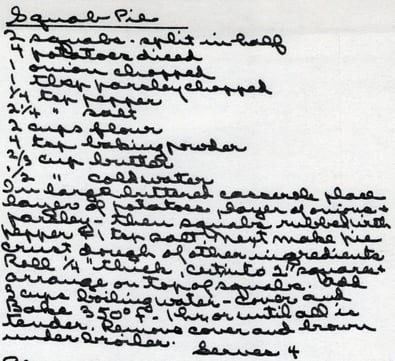 Squab Pie
2 squabs - split in half
4 potatoes diced
1 onion chopped
1 tbsp parsley chopped
1/4 tsp pepper
2 1/4 " salt
2 cups flour
4 tsp baking powder
2/3 cup butter
1/2 " cold water
In large buttered casserole place
layer of potatoes, layer of onions +
parsley - then squabs rubbed with
pepper & 1 tsp salt. Next make pie
crust dough of other ingredients
Roll 1/4" thick, cut into 2" squares +
arrange on top of squabs. Add
3 cups boiling water - cover and
Bake 350° F. 1 hr. or until all is
tender. Remove cover and brown
under broiler.
Serves 4